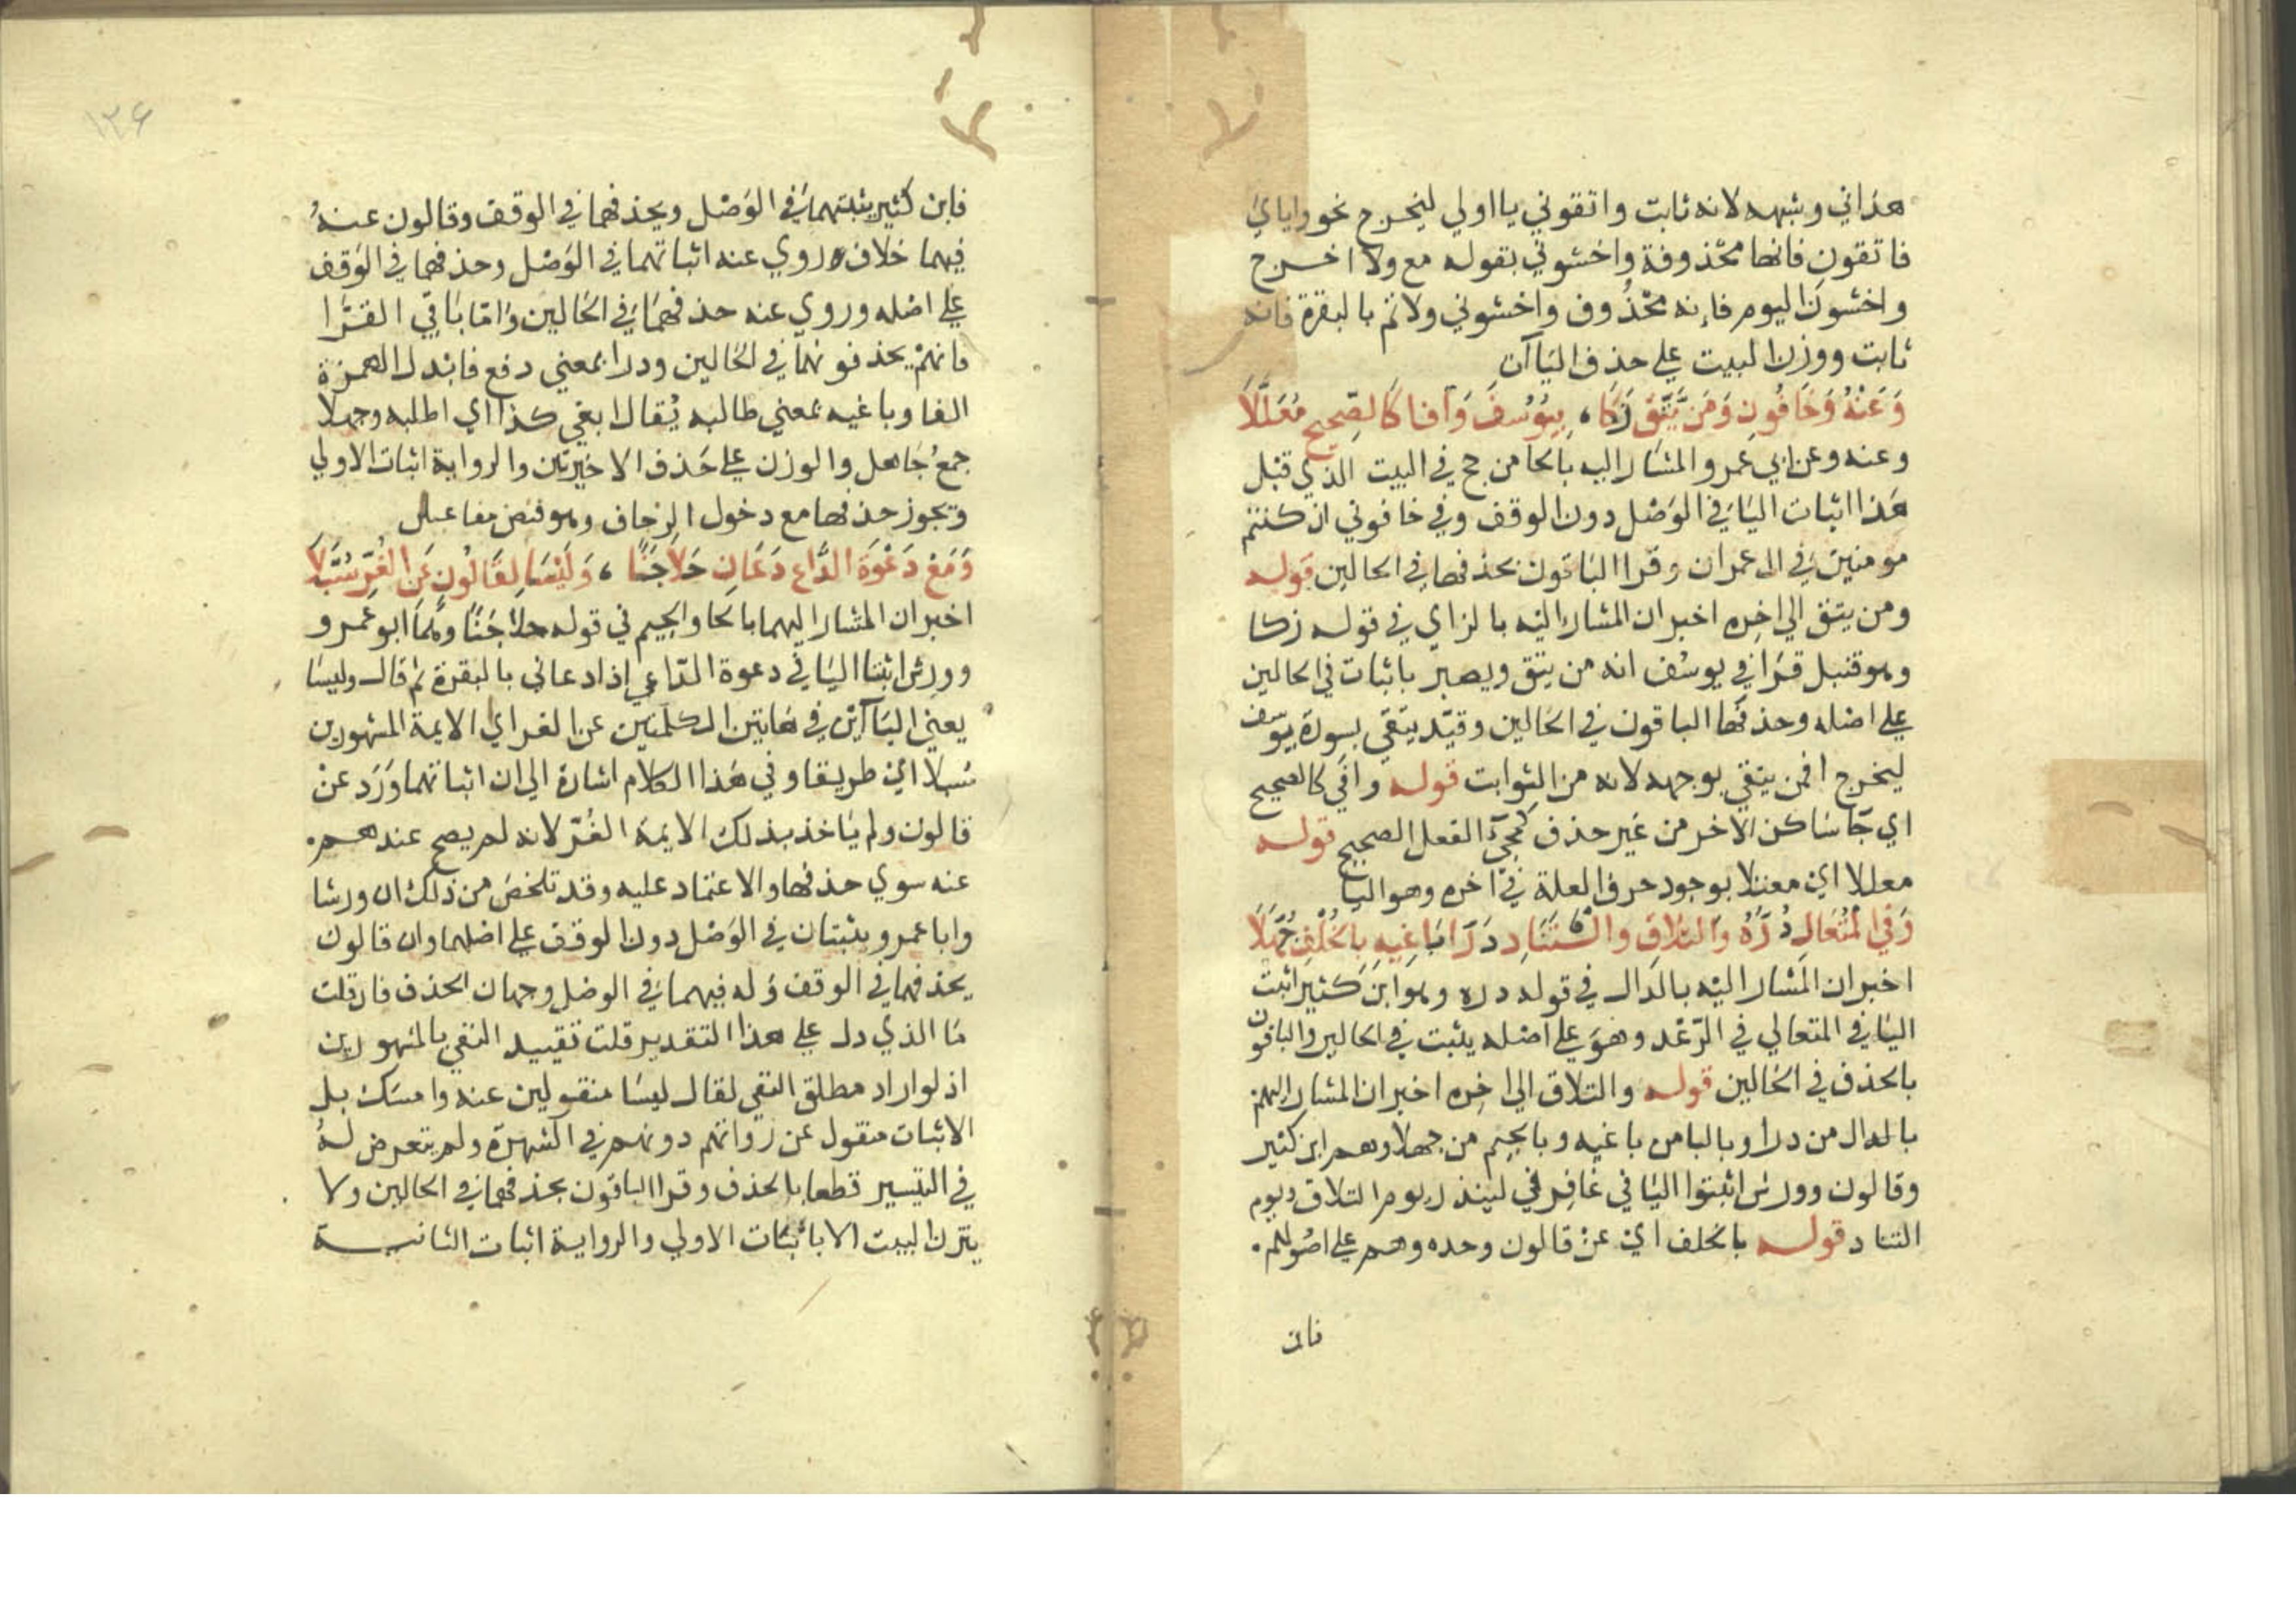 هداني وشبهه لانه ثابت واتقوني يا اولي ليخرج نحو واياي
فاتقون فانها محذوفة واخشوني بقوله مع ولا اخرج
واخشون اليوم فانه محذوف واخشوني ولاتم بالبقرة فانه
ثابت ووزن البيت علي حذف الياآن
وَعَنْهُ وَخَافُونِ وَمَن يَّتَّق زَكَا ، بِيُوسُفَ وَافا كَالصّحِيحِ مُعَلَّلَا
وعنه وعن ابي عمرو المشار اليه بالحا من حج في البيت الذي قبل
هذا اثبات اليا في الوصل دون الوقف وفي خافوني ان كنتم
مومنين في ال عمران وقرا الباقون بحذفها في الحالين قوله
ومن يتق الي اخره اخبر ان المشار اليه بالزاي في قوله زكا
وهو قنبل قرا في يوسف انه من يتق ويصبر باثبات في الحالين
علي اصله وحذفها الباقون في الحالين وقيد يتقي بسورة يوسف
ليخرج افمن يتقي بوجهه لانه من الثوابت قوله وافي كالصحيح
اي جا ساكن الاخر من غير حذف كمجي الفعل الصحيح قوله
معللا اي معتلا بوجود حرف العلة في اخره وهو اليا
وَفي الْمُتَعَالِ دُرُّهُ وَالتلاقِ والتَّنَادِ دَرَا بَاغِيهِ بِالخُلْفِ جُهَّلَا
اخبر ان المشار اليه بالدال في قوله دره وهو ابن كثير اثبت
اليا في المتعالي في الرعد وهو علي اصله يثبت في الحالين والباقون
بالحذف في الحالين قوله والتلاق الي اخره اخبر ان المشار اليهم
بالدال من درا وبالبا من باغيه وبالجيم من جهلا وهم ابن كثير
وقالون وورش اثبتوا اليا في غافر في لينذر يوم التلاق ويوم
التناد قوله بالخلف اي عن قالون وحده وهم علي اصولهم
فابن
١٣٤
فابن كثير يثبتهما في الوصل ويحذفهما في الوقف وقالون عنه
فيهما خلاف وروي عنه اثباتهما في الوصل وحذفهما في الوقف
علي اصله وروي عنه حذفهما في الحالين واما باقي القرا
فانهم يحذفونهما في الحالين ودرا بمعني دفع فابدل الهمزة
الفا وباغيه بمعني طالبه يُقال ابغي كذا اي اطلبه وجهلا
جمعُ جاهل والوزن علي حذف الاخيرتين والرواية اثبات الاولي
وتجوز حذفها مع دخول الزحاف وهو قبض مفاعيلن
وَمَعْ دَعْوَةَ الدَّاعِ دَعَانِ حَلَا جَنًا ، وَلَيْسَا لِقَالُونٍ عَنِ الْغُرِّ سُبَّلَا
اخبر ان المشار اليهما بالحا والجيم في قوله حلا جنًا وهما ابو عمرو
وورش اثبتا اليا في دعوة الداعي إذا دعاني بالبقرة ثم قال وليسا
يعني الياآين في هاتين الكلمتين عن الغر اي الايمة المشهورين
سبلا اي طريقا وفي هذا الكلام اشارة الي ان اثباتهما وَرَد عن
قالون ولم ياخذ بذلك الايمة الغُرّ لانه لم يصح عندهم
عنه سوي حذفها والاعتماد عليه وقد تلخص من ذلك ان ورشا
وابا عمرو يثبتان في الوصل دون الوقف علي اصلهما وان قالون
يحذفهما في الوقف وله فيهما في الوصل وجهان الحذف فان قلت
ما الذي دل علي هذا التقدير قلت تقييد النفي بالمشهورين
اذ لو اراد مطلق النفي لقال ليسا منقولين عنه وامسك بل
الاثبات منقول عن رواتهم دونهم في الشهرة ولم يتعرض لهُ
في التيسير قطعا بالحذف وقرا الباقون بحذفهما في الحالين ولا
يتزن البيت الا باثبات الاولي والرواية اثبات الثانية